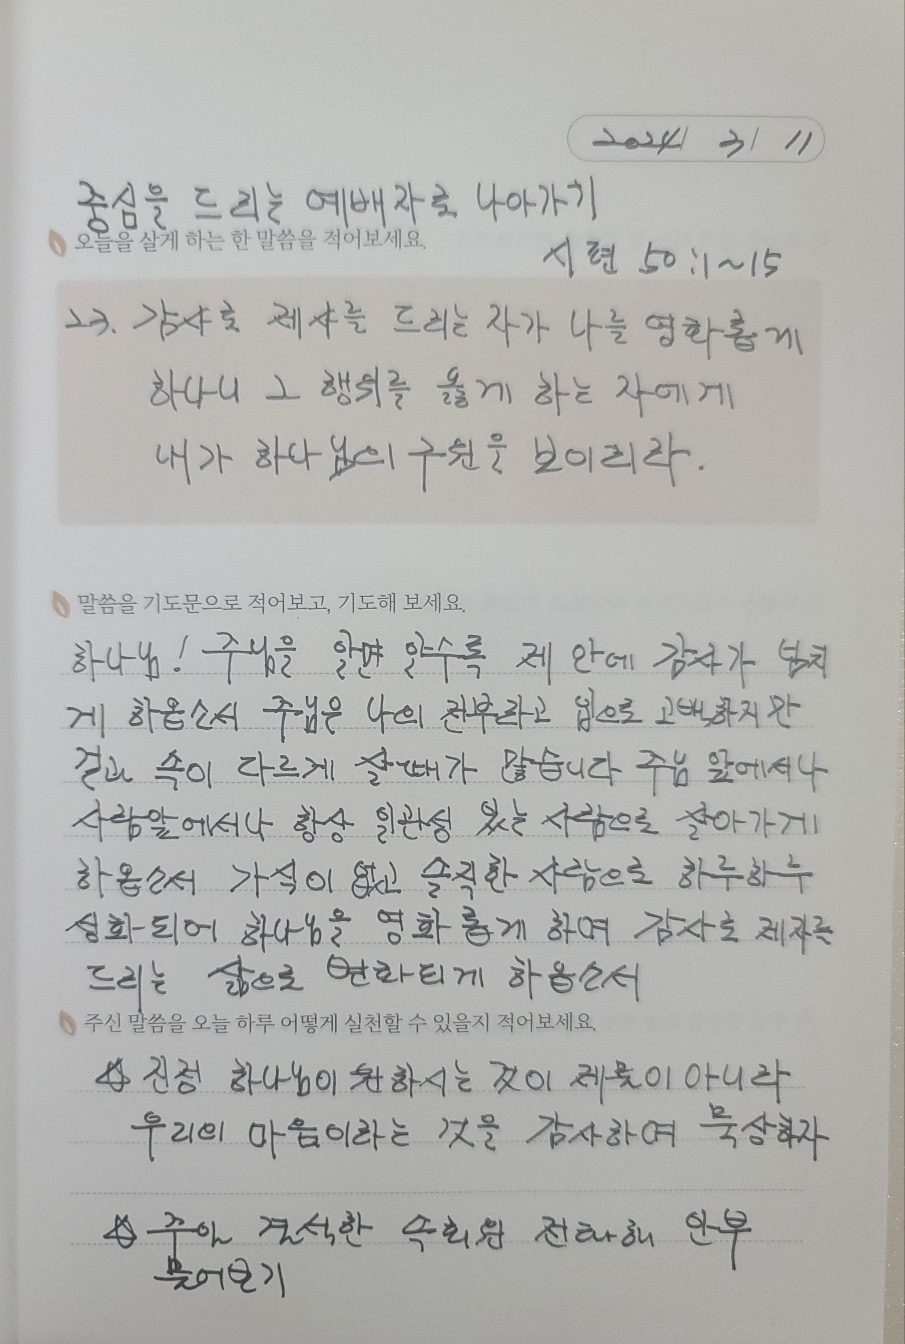 2024/ 3/ 11
중심을 드리는 예배자로 나아가기
오늘을 살게 하는 한 말씀을 적어보세요.
시편 50:1~15
23. 감사로 제사를 드리는 자가 나를 영화롭게
하나니 그 행위를 옳게 하는 자에게
내가 하나님의 구원을 보이리라.
말씀을 기도문으로 적어보고, 기도해 보세요.
하나님! 주님을 알면 알수록 제 안에 감사가 넘치
게 하옵소서 주님은 나의 전부라고 입으로 고백하지만
겉과 속이 다르게 살때가 많습니다 주님 앞에서나
사람앞에서나 항상 일관성 있는 사람으로 살아가게
하옵소서 가식이 없고 솔직한 사람으로 하루하루
성화되어 하나님을 영화롭게 하며 감사로 제사를
드리는 삶으로 변화되게 하옵소서
주신 말씀을 오늘 하루 어떻게 실천할 수 있을지 적어보세요.
☆ 진정 하나님이 원하시는 것이 제물이 아니라
우리의 마음이라는 것을 감사하며 묵상하자
☆ 주안 결석한 속회원 전화해 안부
물어보기